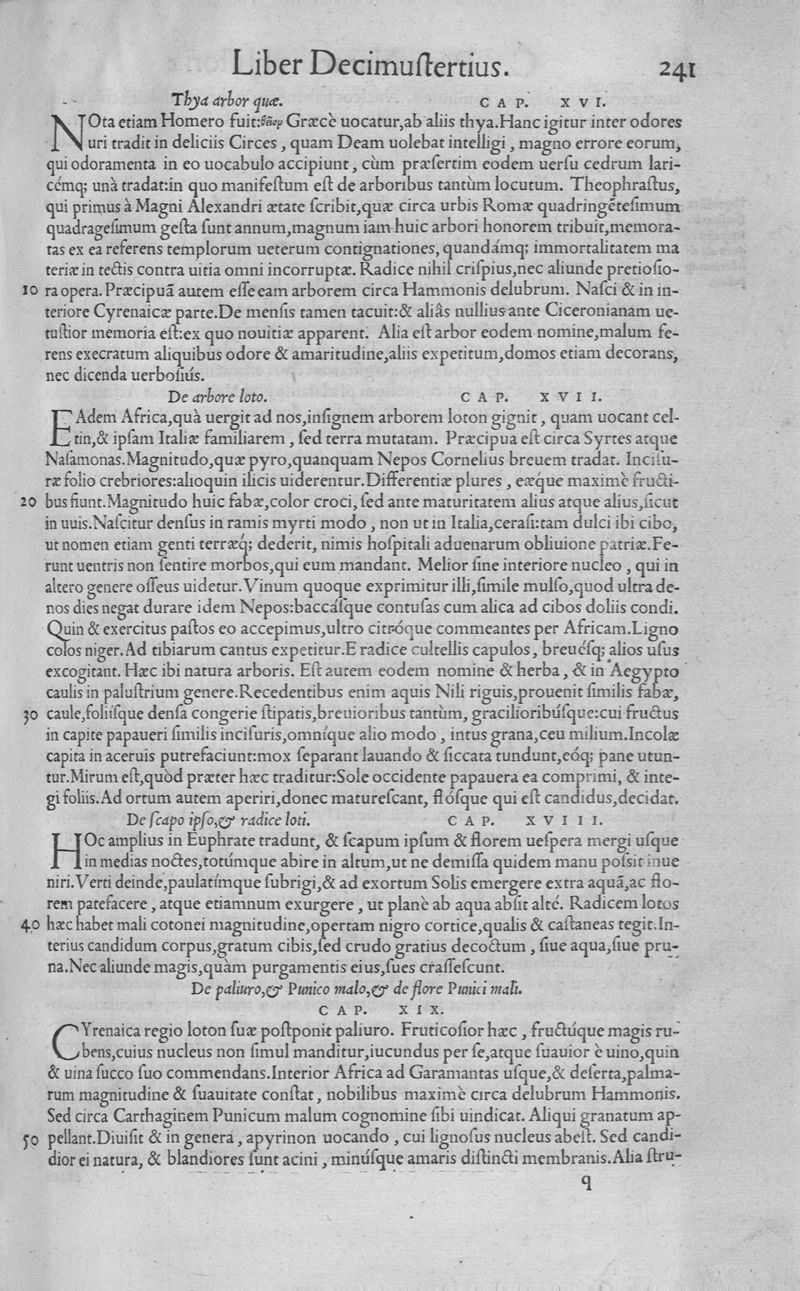 Liber Decimuſtertius. 241
Thya arbor quæ. CAP. XVI.
NOta etiam Homero fuit:θύον Græcè uocatur,ab aliis thya.Hanc igitur inter odores
uri tradit in deliciis Circes , quam Deam uolebat intelligi , magno errore eorum,
qui odoramenta in eo uocabulo accipiunt , cùm præſertim eodem uerſu cedrum lari-
cémq; unà tradat:in quo manifeſtum eſt de arboribus tantùm locutum. Theophraſtus,
qui primus à Magni Alexandri ætate ſcribit,quæ circa urbis Romæ quadringēteſimum
quadrageſimum geſta ſunt annum,magnum iam huic arbori honorem tribuit,memora-
tas ex ea referens templorum ueterum contignationes, quandámq; immortalitatem ma
teriæ in tectis contra uitia omni incorruptæ. Radice nihil criſpius,nec aliunde pretioſio-
10 ra opera. Præcipuā autem eſſe eam arborem circa Hammonis delubrum. Naſci & in in-
teriore Cyrenaicæ parte.De menſis tamen tacuit:& aliâs nullius ante Ciceronianam ue-
tuſtior memoria eſt:ex quo nouitiæ apparent. Alia eſt arbor eodem nomine,malum fe-
rens execratum aliquibus odore & amaritudine,aliis expetitum,domos etiam decorans,
nec dicenda uerboſiús.
De arbore loto. CAP. XVII.
EAdem Africa,quà uergit ad nos,inſignem arborem loton gignit , quam uocant cel-
tin,& ipſam Italiæ familiarem , ſed terra mutatam. Præcipua eſt circa Syrtes atque
Naſamonas.Magnitudo,quæ pyro,quanquam Nepos Cornelius breuem tradat. Inciſu-
ræ folio crebriores:alioquin ilicis uiderentur.Differentiæ plures , eæque maximè fructi-
20 bus fiunt.Magnitudo huic fabæ,color croci, ſed ante maturitatem alius atque alius,ſicut
in uuis.Naſcitur denſus in ramis myrti modo , non ut in Italia,ceraſi:tam dulci ibi cibo,
ut nomen etiam genti terræq́; dederit, nimis hoſpitali aduenarum obliuione patriæ.Fe-
runt uentris non ſentire morbos,qui eum mandant. Melior ſine interiore nucleo , qui in
altero genere oſſeus uidetur.Vinum quoque exprimitur illi,ſimile mulſo,quod ultra de-
nos dies negat durare idem Nepos:baccáſque contuſas cum alica ad cibos doliis condi.
Quin & exercitus paſtos eo accepimus,ultro citróque commeantes per Africam.Ligno
colos niger.Ad tibiarum cantus expetitur.E radice cultellis capulos, breuéſq; alios uſus
excogitant. Hæc ibi natura arboris. Eſt autem eodem nomine & herba , & in Aegypto
caulis in paluſtrium genere.Recedentibus enim aquis Nili riguis,prouenit ſimilis fabæ,
30 caule,foliiſque denſa congerie ſtipatis,breuioribus tantùm, gracilioribúſque:cui fructus
in capite papaueri ſimilis inciſuris,omníque alio modo , intus grana,ceu milium.Incolæ
capita in aceruis putrefaciunt:mox ſeparant lauando & ſiccata tundunt,eóq; pane utun-
tur.Mirum eſt,quòd præter hæc traditur:Sole occidente papauera ea comprimi, & inte-
gi foliis.Ad ortum autem aperiri,donec matureſcant, flóſque qui eſt candidus,decidat.
De ſcapo ipſo,& radice loti. CAP. XVIII.
HOc amplius in Euphrate tradunt, & ſcapum ipſum & florem ueſpera mergi uſque
in medias noctes,totúmque abire in altum,ut ne demiſſa quidem manu poſsit inue
niri.Verti deinde,paulatímque ſubrigi,& ad exortum Solis emergere extra aquā,ac flo-
rem patefacere , atque etiamnum exurgere , ut planè ab aqua abſit altè. Radicem lotos
40 hæc habet mali cotonei magnitudine,opertam nigro cortice,qualis & caſtaneas tegit.In-
terius candidum corpus,gratum cibis,ſed crudo gratius decoctum , ſiue aqua,ſiue pru-
na.Nec aliunde magis,quàm purgamentis eius,ſues craſſeſcunt.
De paliuro,& Punico malo,& de flore Punici mali.
CAP. XIX.
CYrenaica regio loton ſuæ poſtponit paliuro. Fruticoſior hæc , fructúque magis ru-
bens,cuius nucleus non ſimul manditur,iucundus per ſe,atque ſuauior è uino,quin
& uina ſucco ſuo commendans.Interior Africa ad Garamantas uſque,& deſerta,palma-
rum magnitudine & ſuauitate conſtat , nobilibus maximè circa delubrum Hammonis.
Sed circa Carthaginem Punicum malum cognomine ſibi uindicat. Aliqui granatum ap-
50 pellant.Diuiſit & in genera , apyrinon uocando , cui lignoſus nucleus abeſt. Sed candi-
dior ei natura, & blandiores ſunt acini , minúſque amaris diſtincti membranis.Alia ſtru-
q